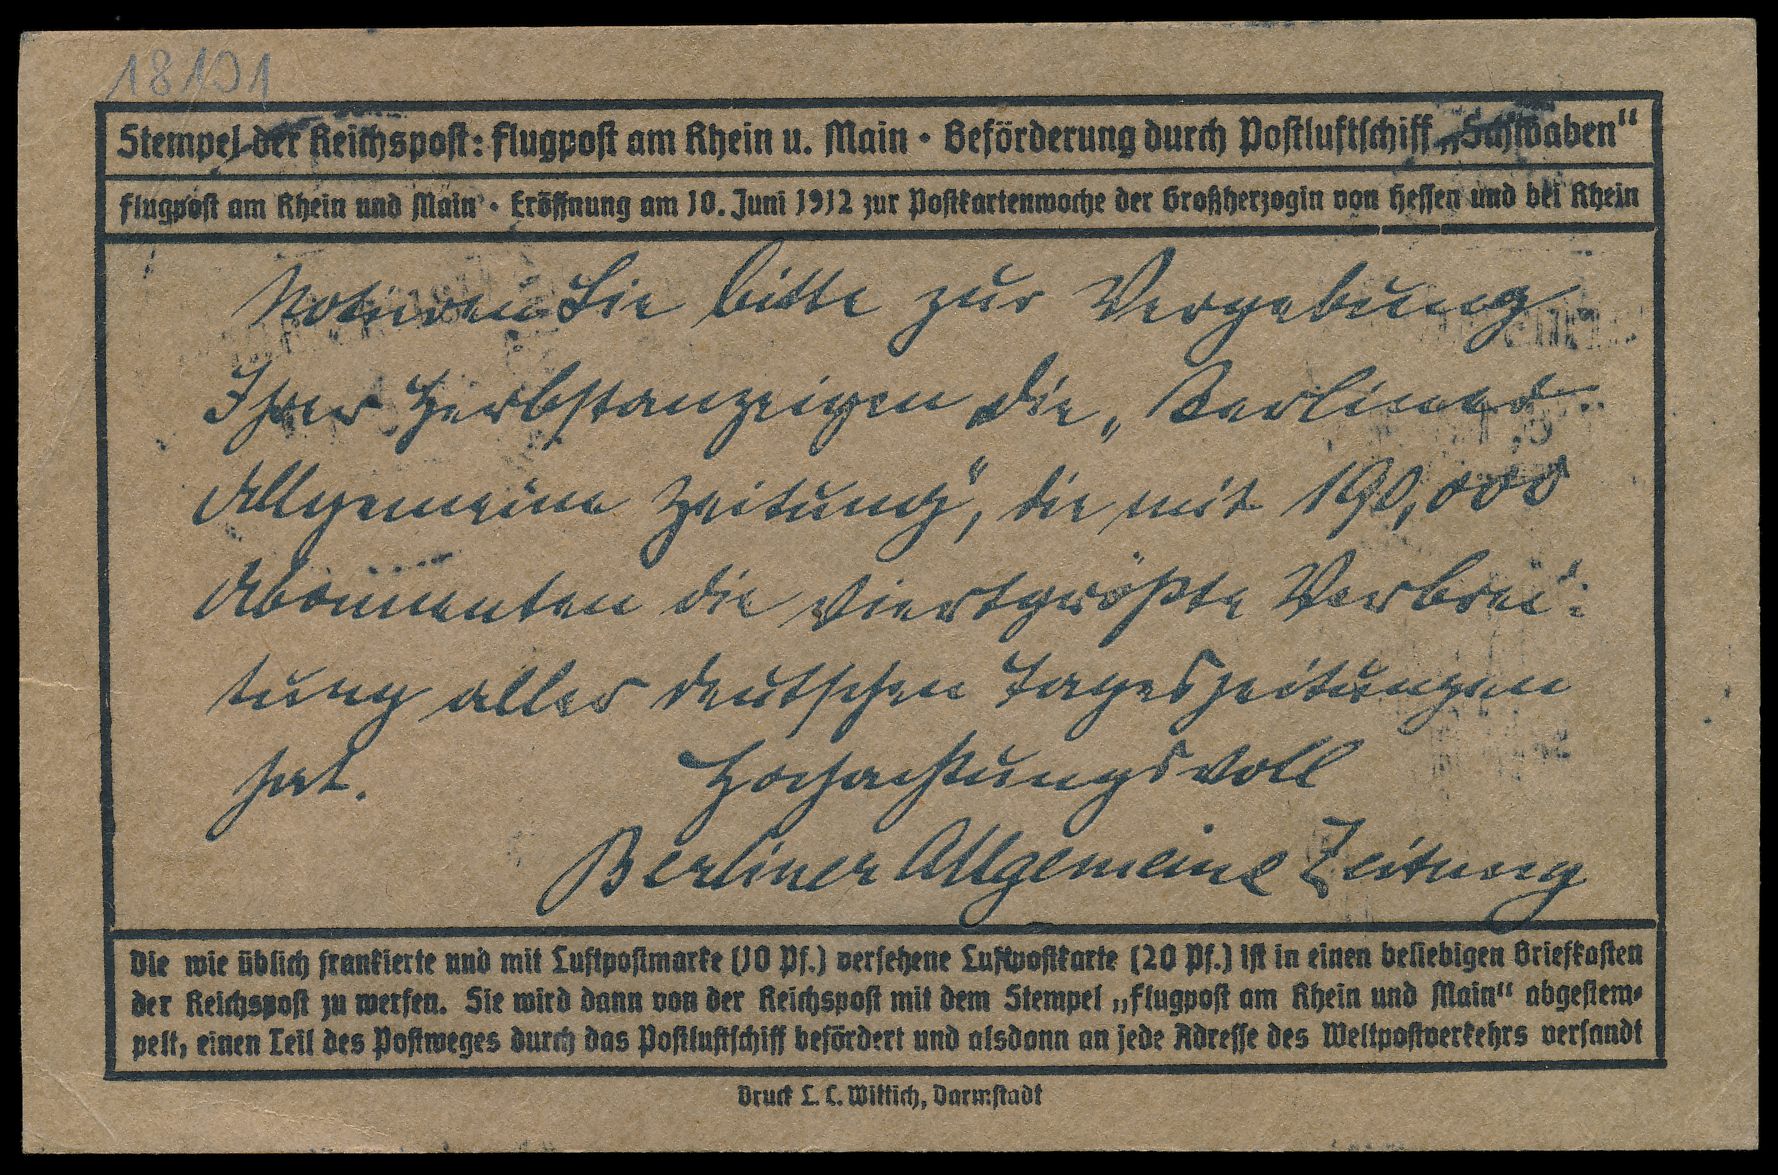 18101
Stempel der Reichspost: Flugpost am Rhein u. Main · Beförderung durch Postluftschiff „Schwaben“
Flugpost am Rhein und Main · Eröffnung am 10. Juni 1912 zur Postkartenwoche der Großherzogin von Hessen und bei Rhein
Notieren Sie bitte zur Vergebung
Ihrer Herbstanzeigen die „Berliner
Allgemeine Zeitung“, die mit 190,000
Abonnenten die viertgrößte Verbrei-
tung aller deutschen Tageszeitungen
hat. Hochachtungsvoll
Berliner Allgemeine Zeitung
Die wie üblich frankierte und mit Luftpostmarke (10 Pf.) versehene Luftpostkarte (20 Pf.) ist in einen beliebigen Briefkasten
der Reichspost zu werfen. Sie wird dann von der Reichspost mit dem Stempel „Flugpost am Rhein und Main“ abgestem-
pelt, einen Teil des Postweges durch das Postluftschiff befördert und alsdann an jede Adresse des Weltpostverkehrs versandt
Druck L. C. Wittich, Darmstadt